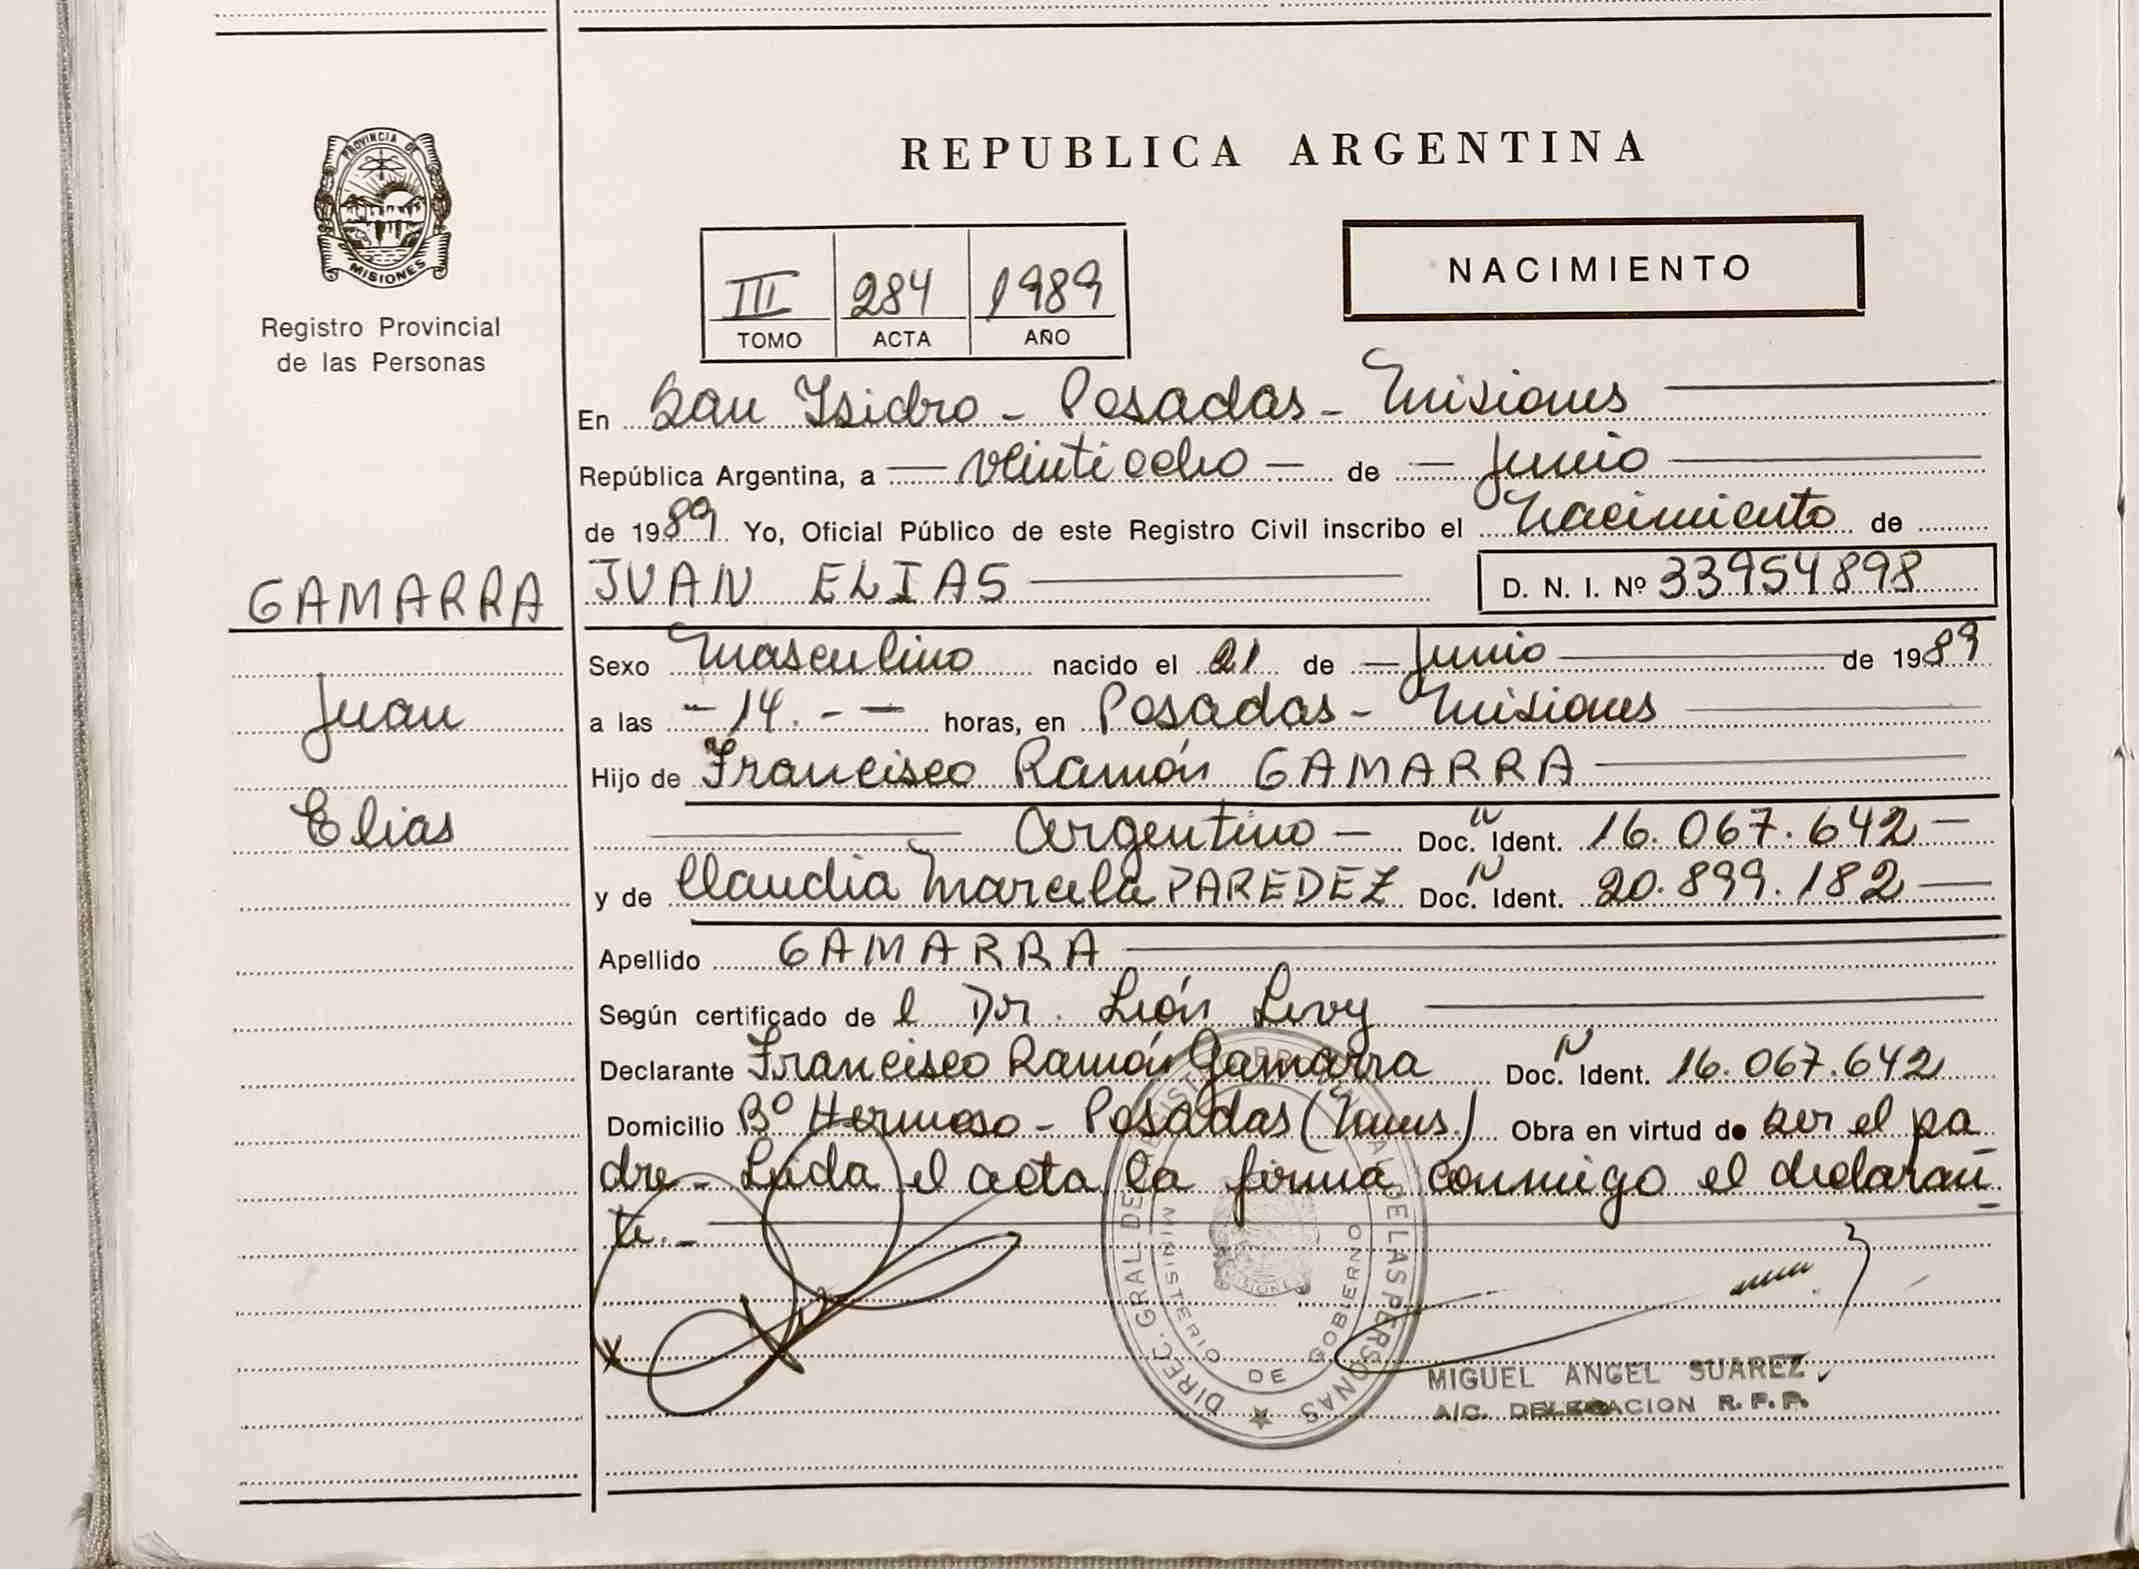 PROVINCIA DE
MISIONES
Registro Provincial
de las Personas
REPUBLICA ARGENTINA
NACIMIENTO
III 284 1989
TOMO ACTA AÑO
En San Isidro - Posadas - Misiones
República Argentina, a veintiocho de Junio
de 1989 Yo, Oficial Público de este Registro Civil inscribo el Nacimiento de
GAMARRA JUAN ELIAS D. N. I. Nº 33954898
Sexo Masculino nacido el 21 de Junio de 1989
Juan
a las - 14. - - horas, en Posadas - Misiones
Hijo de Francisco Ramón GAMARRA
Elias
Argentino - Doc. N Ident. 16.067.642 -
y de Claudia Marcela PAREDEZ Doc. N Ident. 20.899.182
Apellido GAMARRA
Según certificado de l Dr. León Levy
Declarante Francisco Ramón Gamarra Doc. N Ident. 16.067.642
Domicilio Bº Hermoso - Posadas (Mnes.) Obra en virtud de ser el pa
dre - Leida el acta, la firma conmigo el declaran
te. -
DIREC. GRAL DE REGISTRO PROVINCIAL DE LAS PERSONAS
MINISTERIO DE GOBIERNO
MIGUEL ANGEL SUAREZ
A/C. DELEGACION R. P. P.